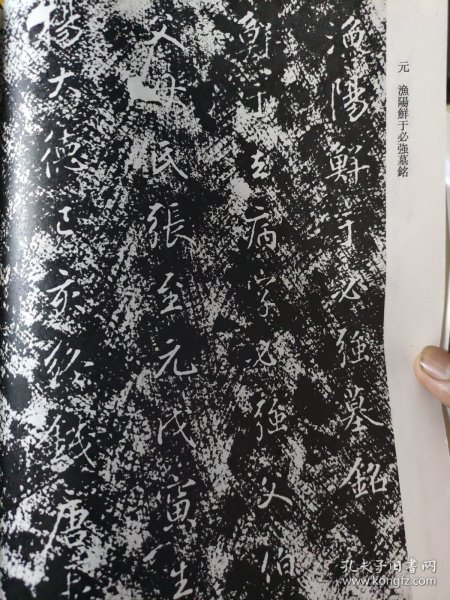 元 漁陽鮮于必強墓銘
漁陽鮮于必強墓銘
鮮于去病字必強父伯
父母氏張至元戊寅生
揚大德己亥終錢唐
孔夫子旧书网
book.kongfz.com